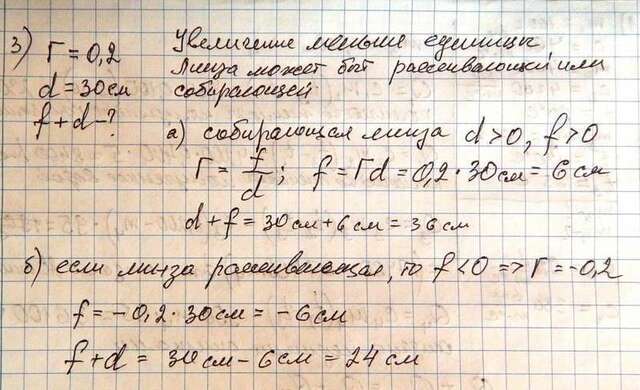 3) Г = 0,2 Увеличение меньше единицы
Линза может быт рассеивающей или
d = 30см собирающей
f + d - ?
а) собирающая линза d > 0, f > 0
Г = f/d ; f = Гd = 0,2 · 30см = 6 см
d + f = 30см + 6 см = 36 см
б) если линза рассеивающая, то f < 0 => Г = -0,2
f = -0,2 · 30см = -6 см
f + d = 30 см - 6 см = 24 см